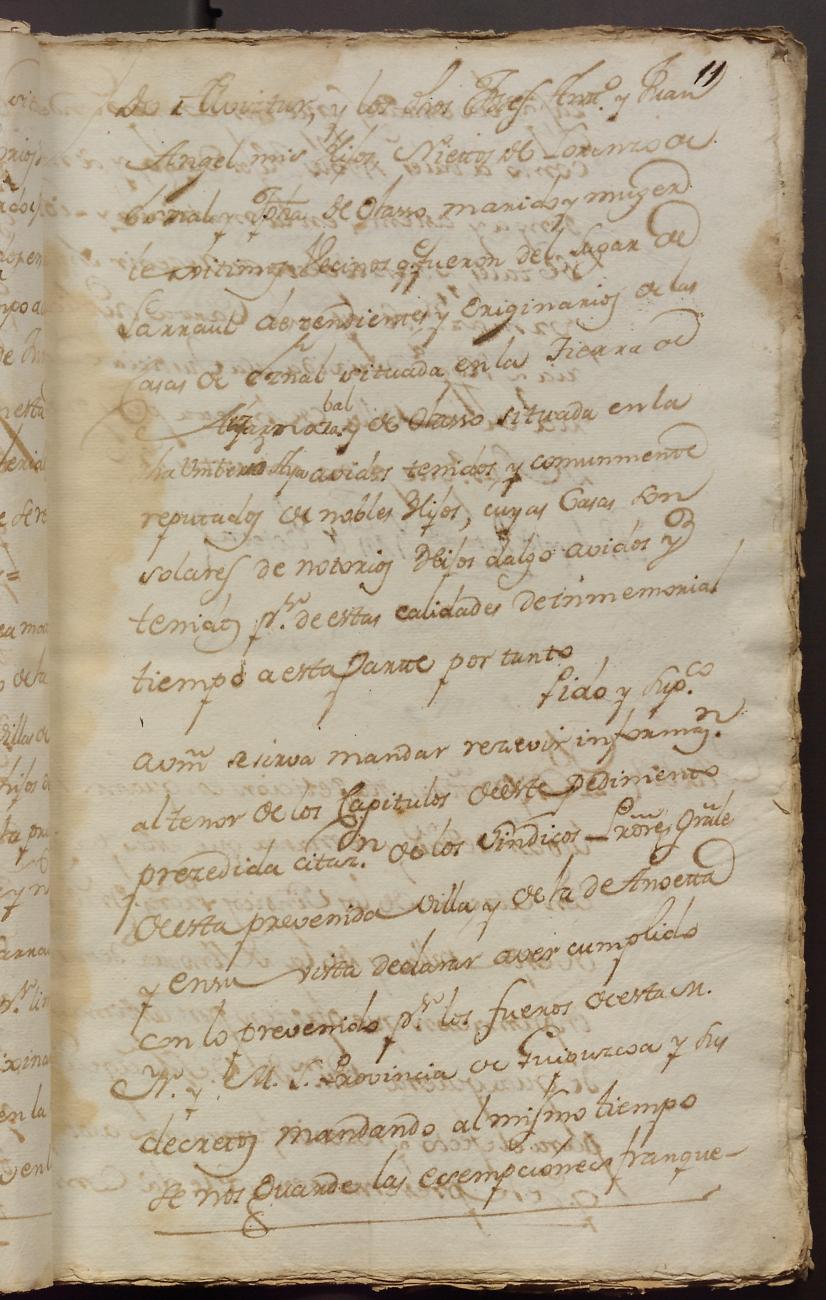 11
de Alviztur, y los dhos Josef Antº. y Juan
Angel mis Hijos, Nietos de Lorenzo de
Eznal y Jpha de Olasso marido y muger
lexitimos Vecinos q fueron del Lugar de
Larraul dezendientes y originarios de las
Casas de Eznal situada en la Tierra de
bal
y de Olasso situada en la
dha avidos tenidos y comunmente
reputados de nobles Hijos, cuyas Casas son
solares de notorios Hijos dalgo avidos y
tenidos pr. de estas calidades de inmemorial
tiempo a esta parte por tanto
Pido y Supco
a vm se sirva mandar rezevir informazn.
al tenor de los Capitulos de este pedimento
prezedida citazn. de los Sindicos Prores Grale
de esta prevenida villa y de la de Anoetta
y en su vista declarar aver cumplido
con lo prevenido pr. los fueros de esta M.
N. y M. L. Provincia de Guipuzcoa y sus
decretos mandando al mismo tiempo
se nos guarde las exsempciones franque-